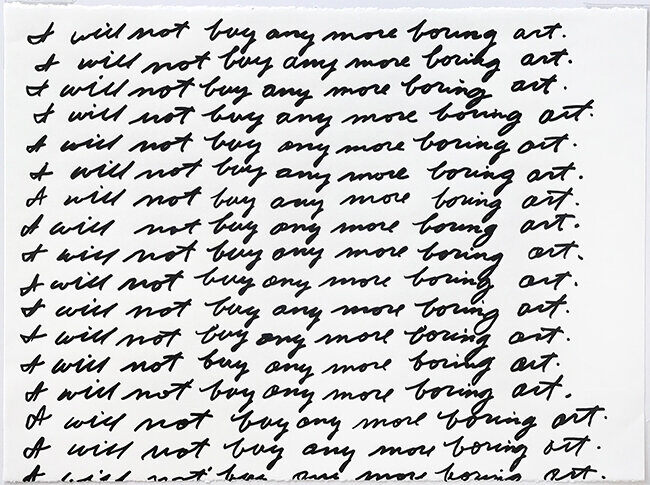 I will not buy any more boring art.
I will not buy any more boring art.
I will not buy any more boring art.
I will not buy any more boring art.
I will not buy any more boring art.
I will not buy any more boring art.
I will not buy any more boring art.
I will not buy any more boring art.
I will not buy any more boring art.
I will not buy any more boring art.
I will not buy any more boring art.
I will not buy any more boring art.
I will not buy any more boring art.
I will not buy any more boring art.
I will not buy any more boring art.
I will not buy any more boring art.
I will not buy any more boring art.